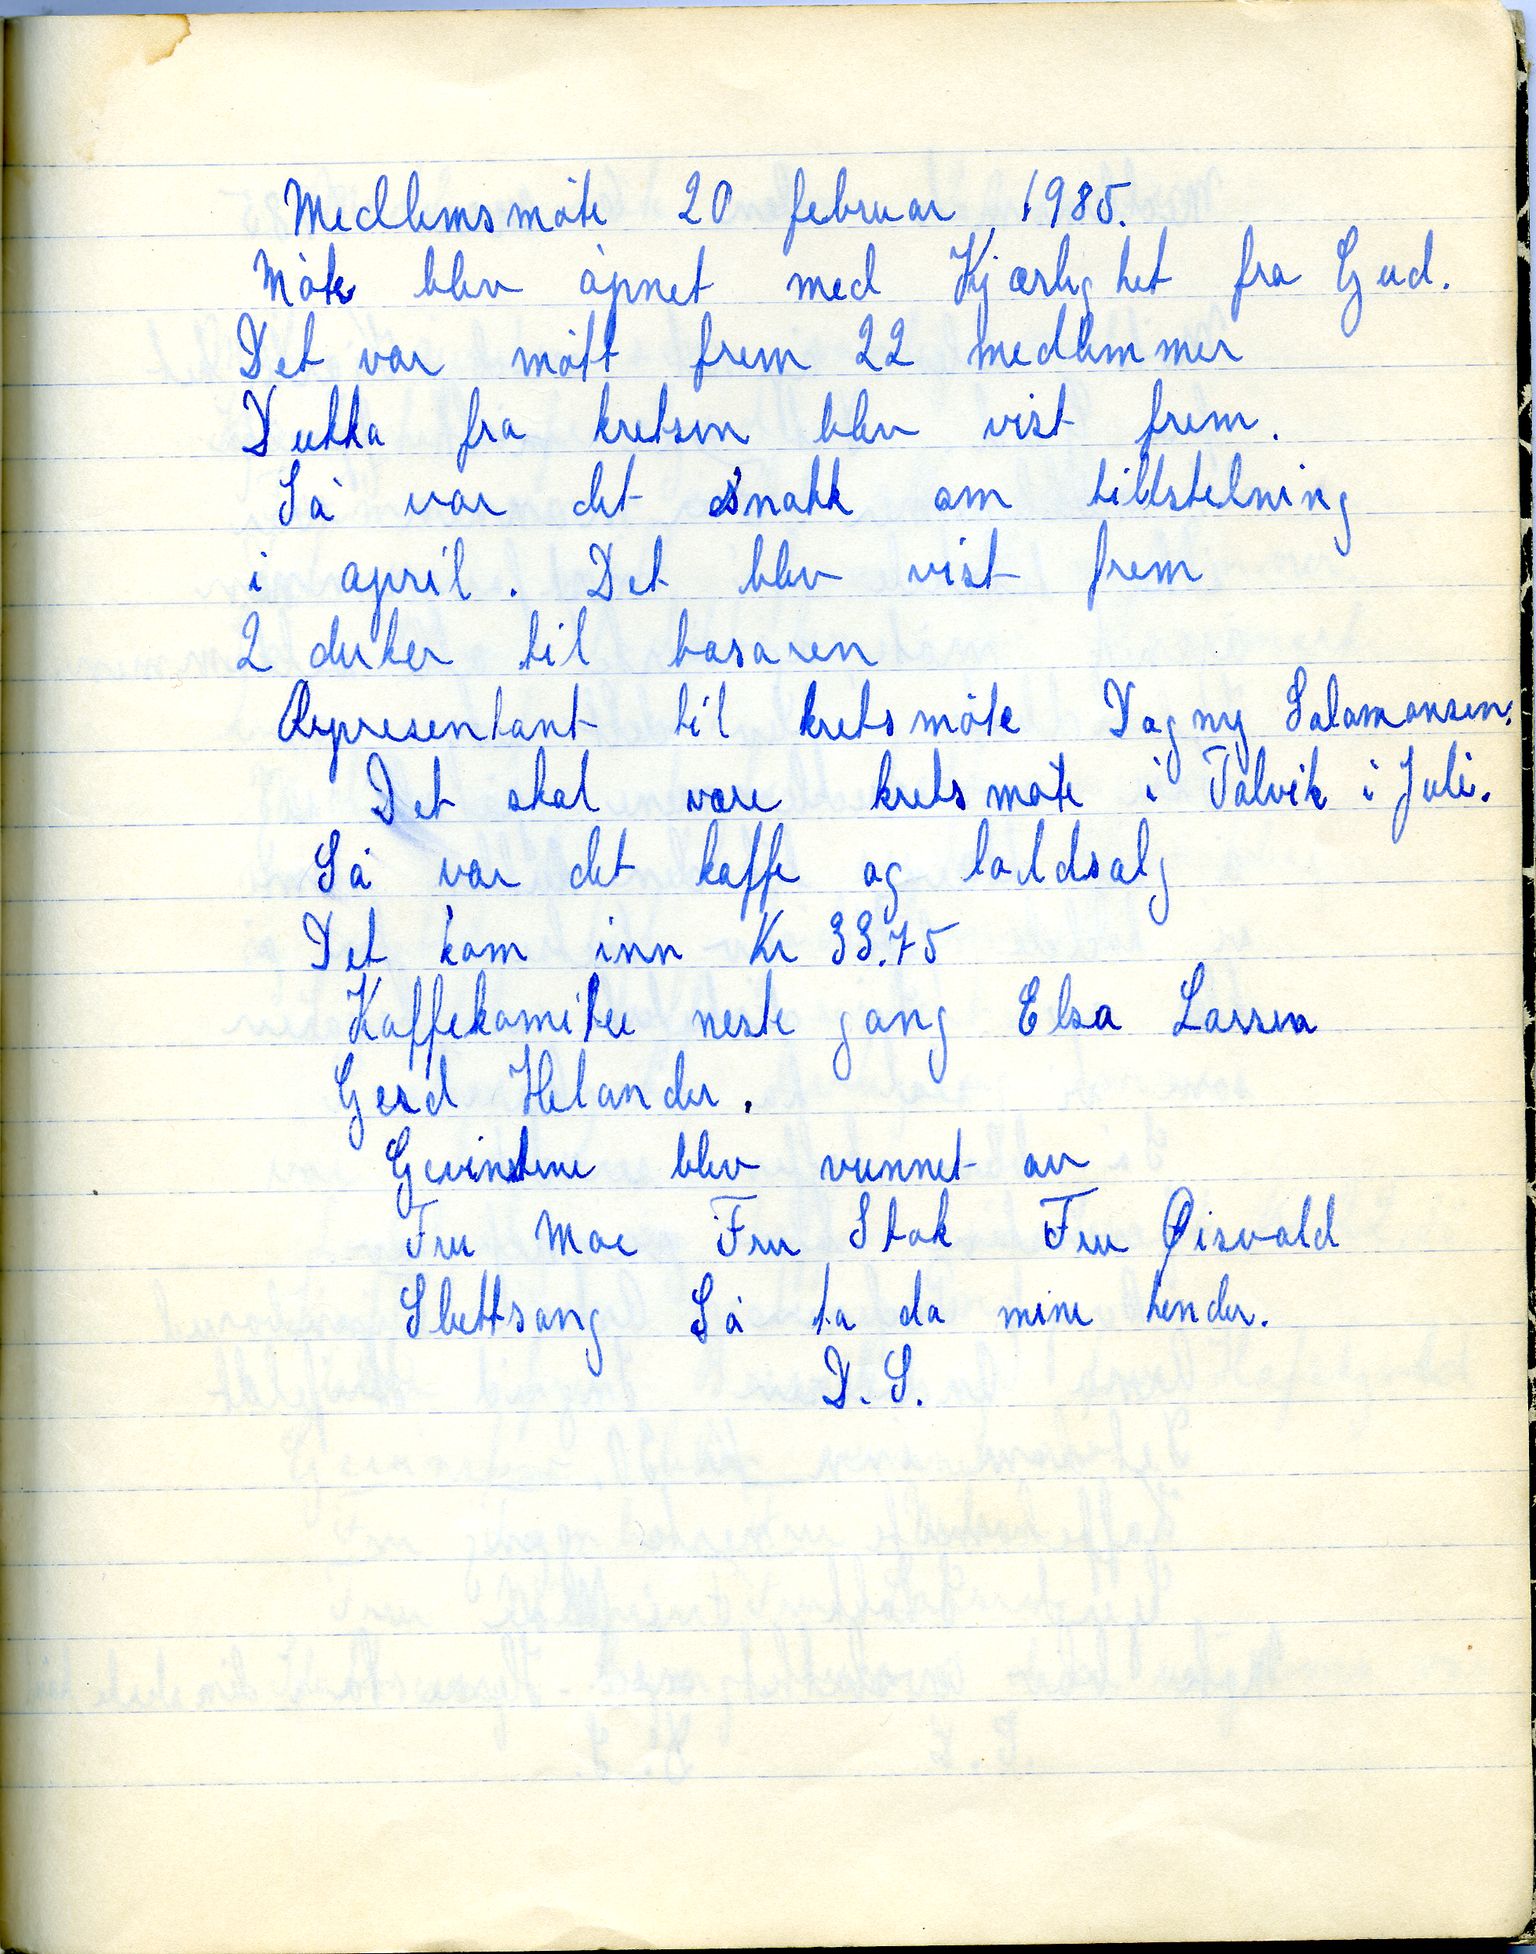 Medlemsmöte 20 februar 1985.
Möte blev åpnet med Kjærlighet fra Gud.
Det var mött frem 22 medlemmer
Dukka fra kretsen blev vist frem.
Så var det snakk om tillstelning
i april. Det blev vist frem
2 duker til basaren
Representant til kretsmöte Dagny Salamonsen.
Det skal være kretsmöte i Talvik i Juli.
Så var det kaffe og loddsalg
Det kom inn Kr 33.75
Kaffekomitee neste gang Elsa Larsen
Gerd Helander.
Gevinstene blev vunnet av
Fru Moe Fru Stok Fru Øisvold
Sluttsang Så ta da mine hender.
D.S.